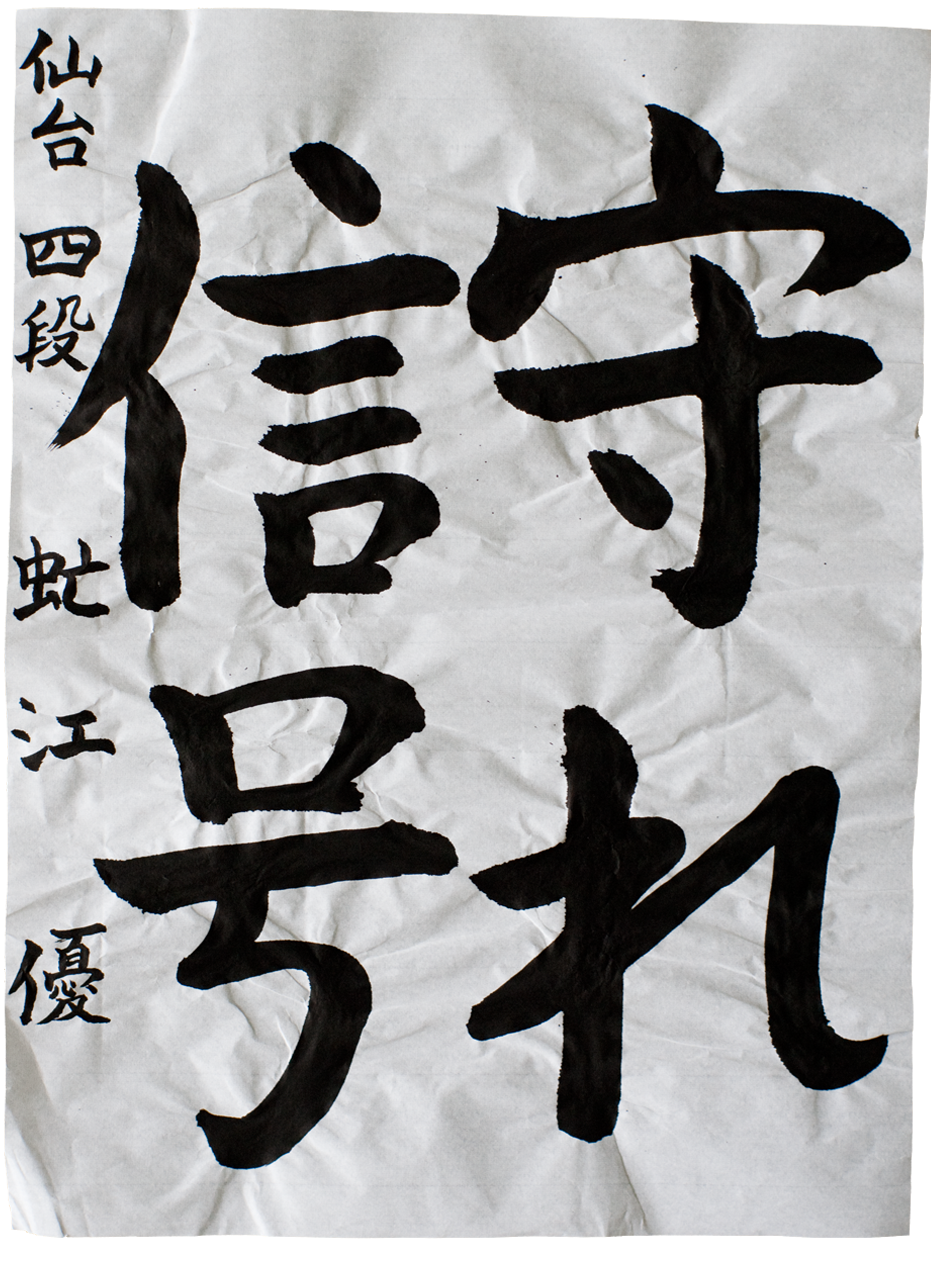 守れ
信号
仙台 四段 虻江 優